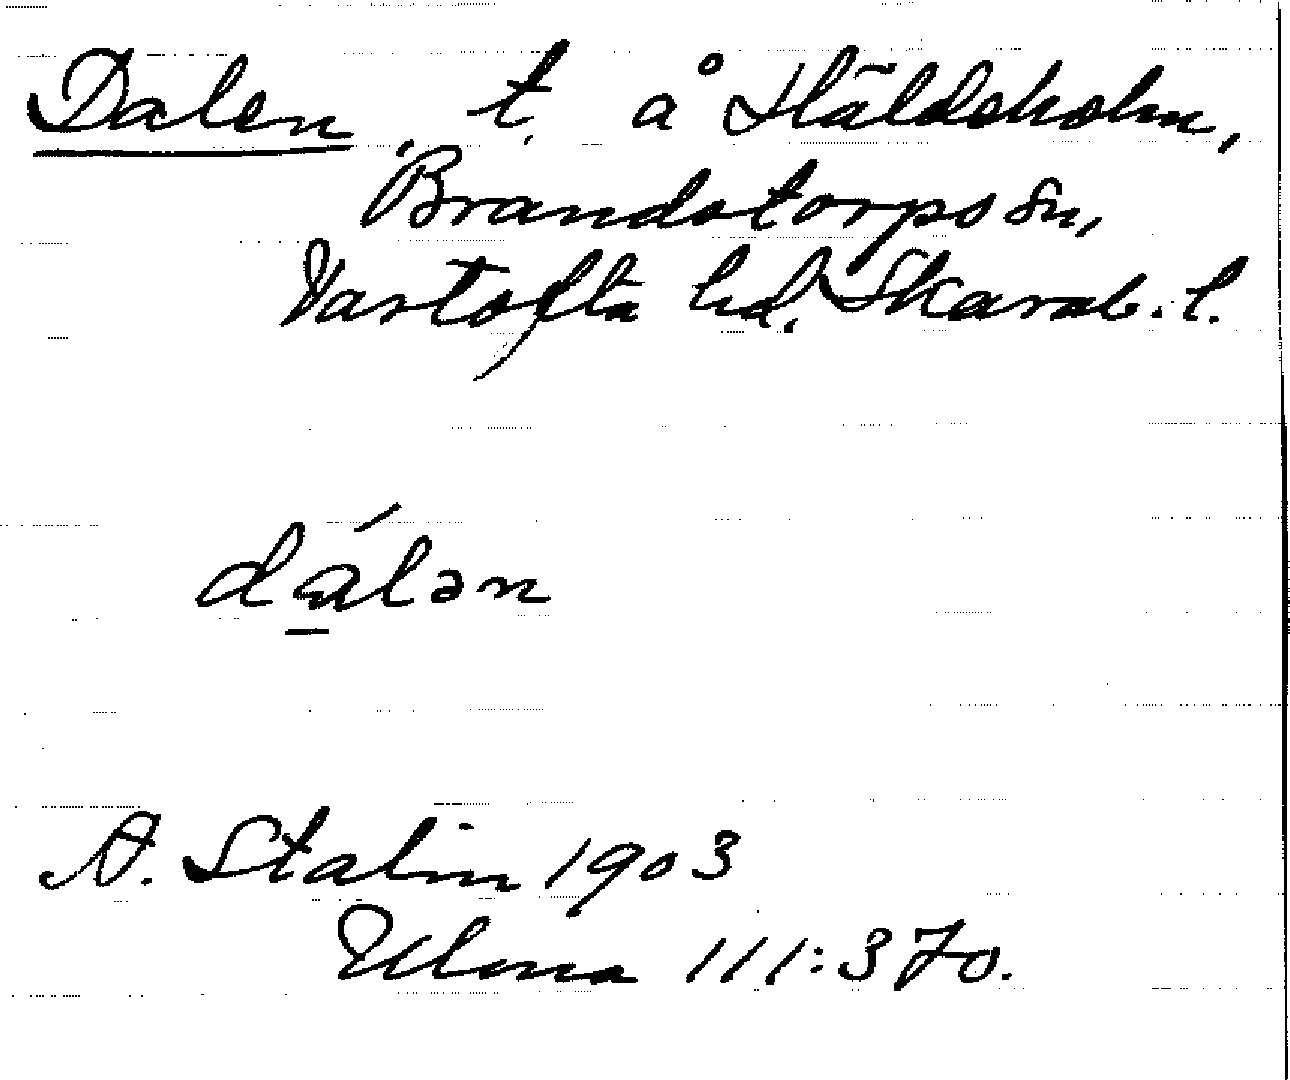 Dalen, t. å Häldeholm,
Brandstorps sn,
Vartofta hd. Skarab. l.
da̱´lən
A. Stalin 1903
Ulma 111:370.